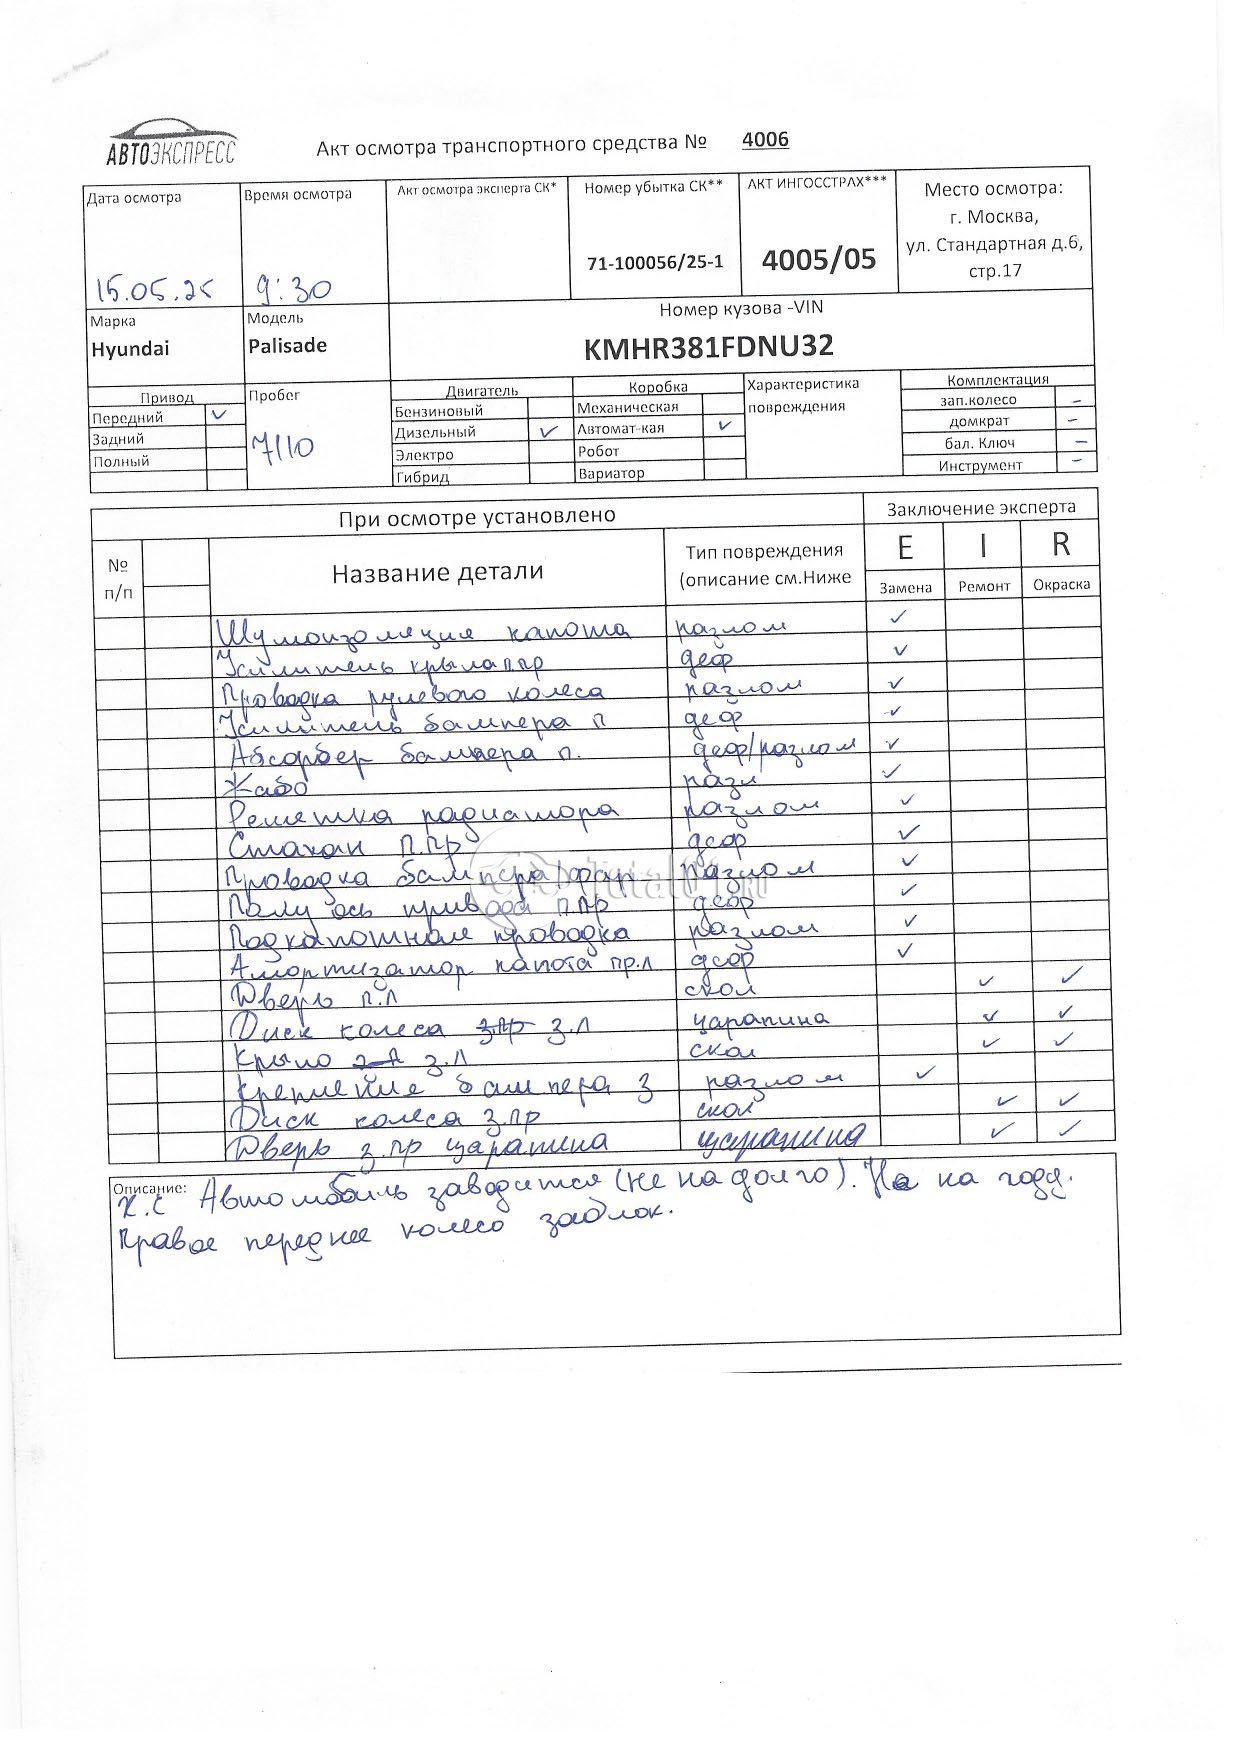 АВТОЭКСПРЕСС
Акт осмотра транспортного средства № 4006
Дата осмотра
15.05.25
Время осмотра
9:30
Акт осмотра эксперта СК*
Номер убытка СК**
71-100056/25-1
АКТ ИНГОССТРАХ***
4005/05
Место осмотра:
г. Москва,
ул. Стандартная д.6,
стр.17
Марка
Hyundai
Модель
Palisade
Номер кузова -VIN
KMHR381FDNU32
Привод
Передний ✓
Задний
Полный
Пробег
7110
Двигатель
Бензиновый
Дизельный ✓
Электро
Гибрид
Коробка
Механическая
Автомат-кая ✓
Робот
Вариатор
Характеристика
повреждения
Комплектация
зап.колесо –
домкрат –
бал. Ключ –
Инструмент –
При осмотре установлено
Заключение эксперта
№
п/п
Название детали
Тип повреждения
(описание см.Ниже
E I R
Замена Ремонт Окраска
Шумоизоляция капота разлом ✓
Усилитель крыла п.пр деф ✓
Проводка рулевого колеса разлом ✓
Усилитель бампера п деф ✓
Абсорбер бампера п. деф/разлом ✓
Жабо разл ✓
Решетка радиатора разлом ✓
Стакан п.пр деф ✓
Проводка бампера разлом ✓
Полуось привода п.пр деф ✓
Подкапотная проводка разлом ✓
Амортизатор капота пр.л деф ✓
Дверь п.л скол ✓ ✓
Диск колеса з.пр з.л царапина ✓ ✓
Крыло з.л скол ✓ ✓
Крепление бампера з разлом ✓
Диск колеса з.пр скол ✓ ✓
Дверь з.пр царапина царапина ✓ ✓
Total01.ru
Описание:
Автомобиль заводится (не на долго). Не на ходу.
Правое переднее колесо заблок.